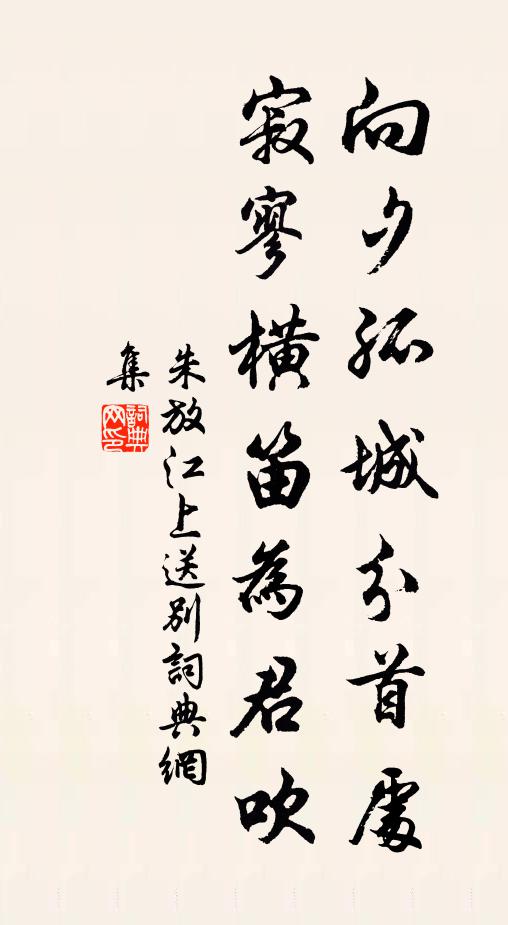 向夕孤城分首處
寂寥橫笛為君吹
朱放江上送別詞典網
集
詞典
网印